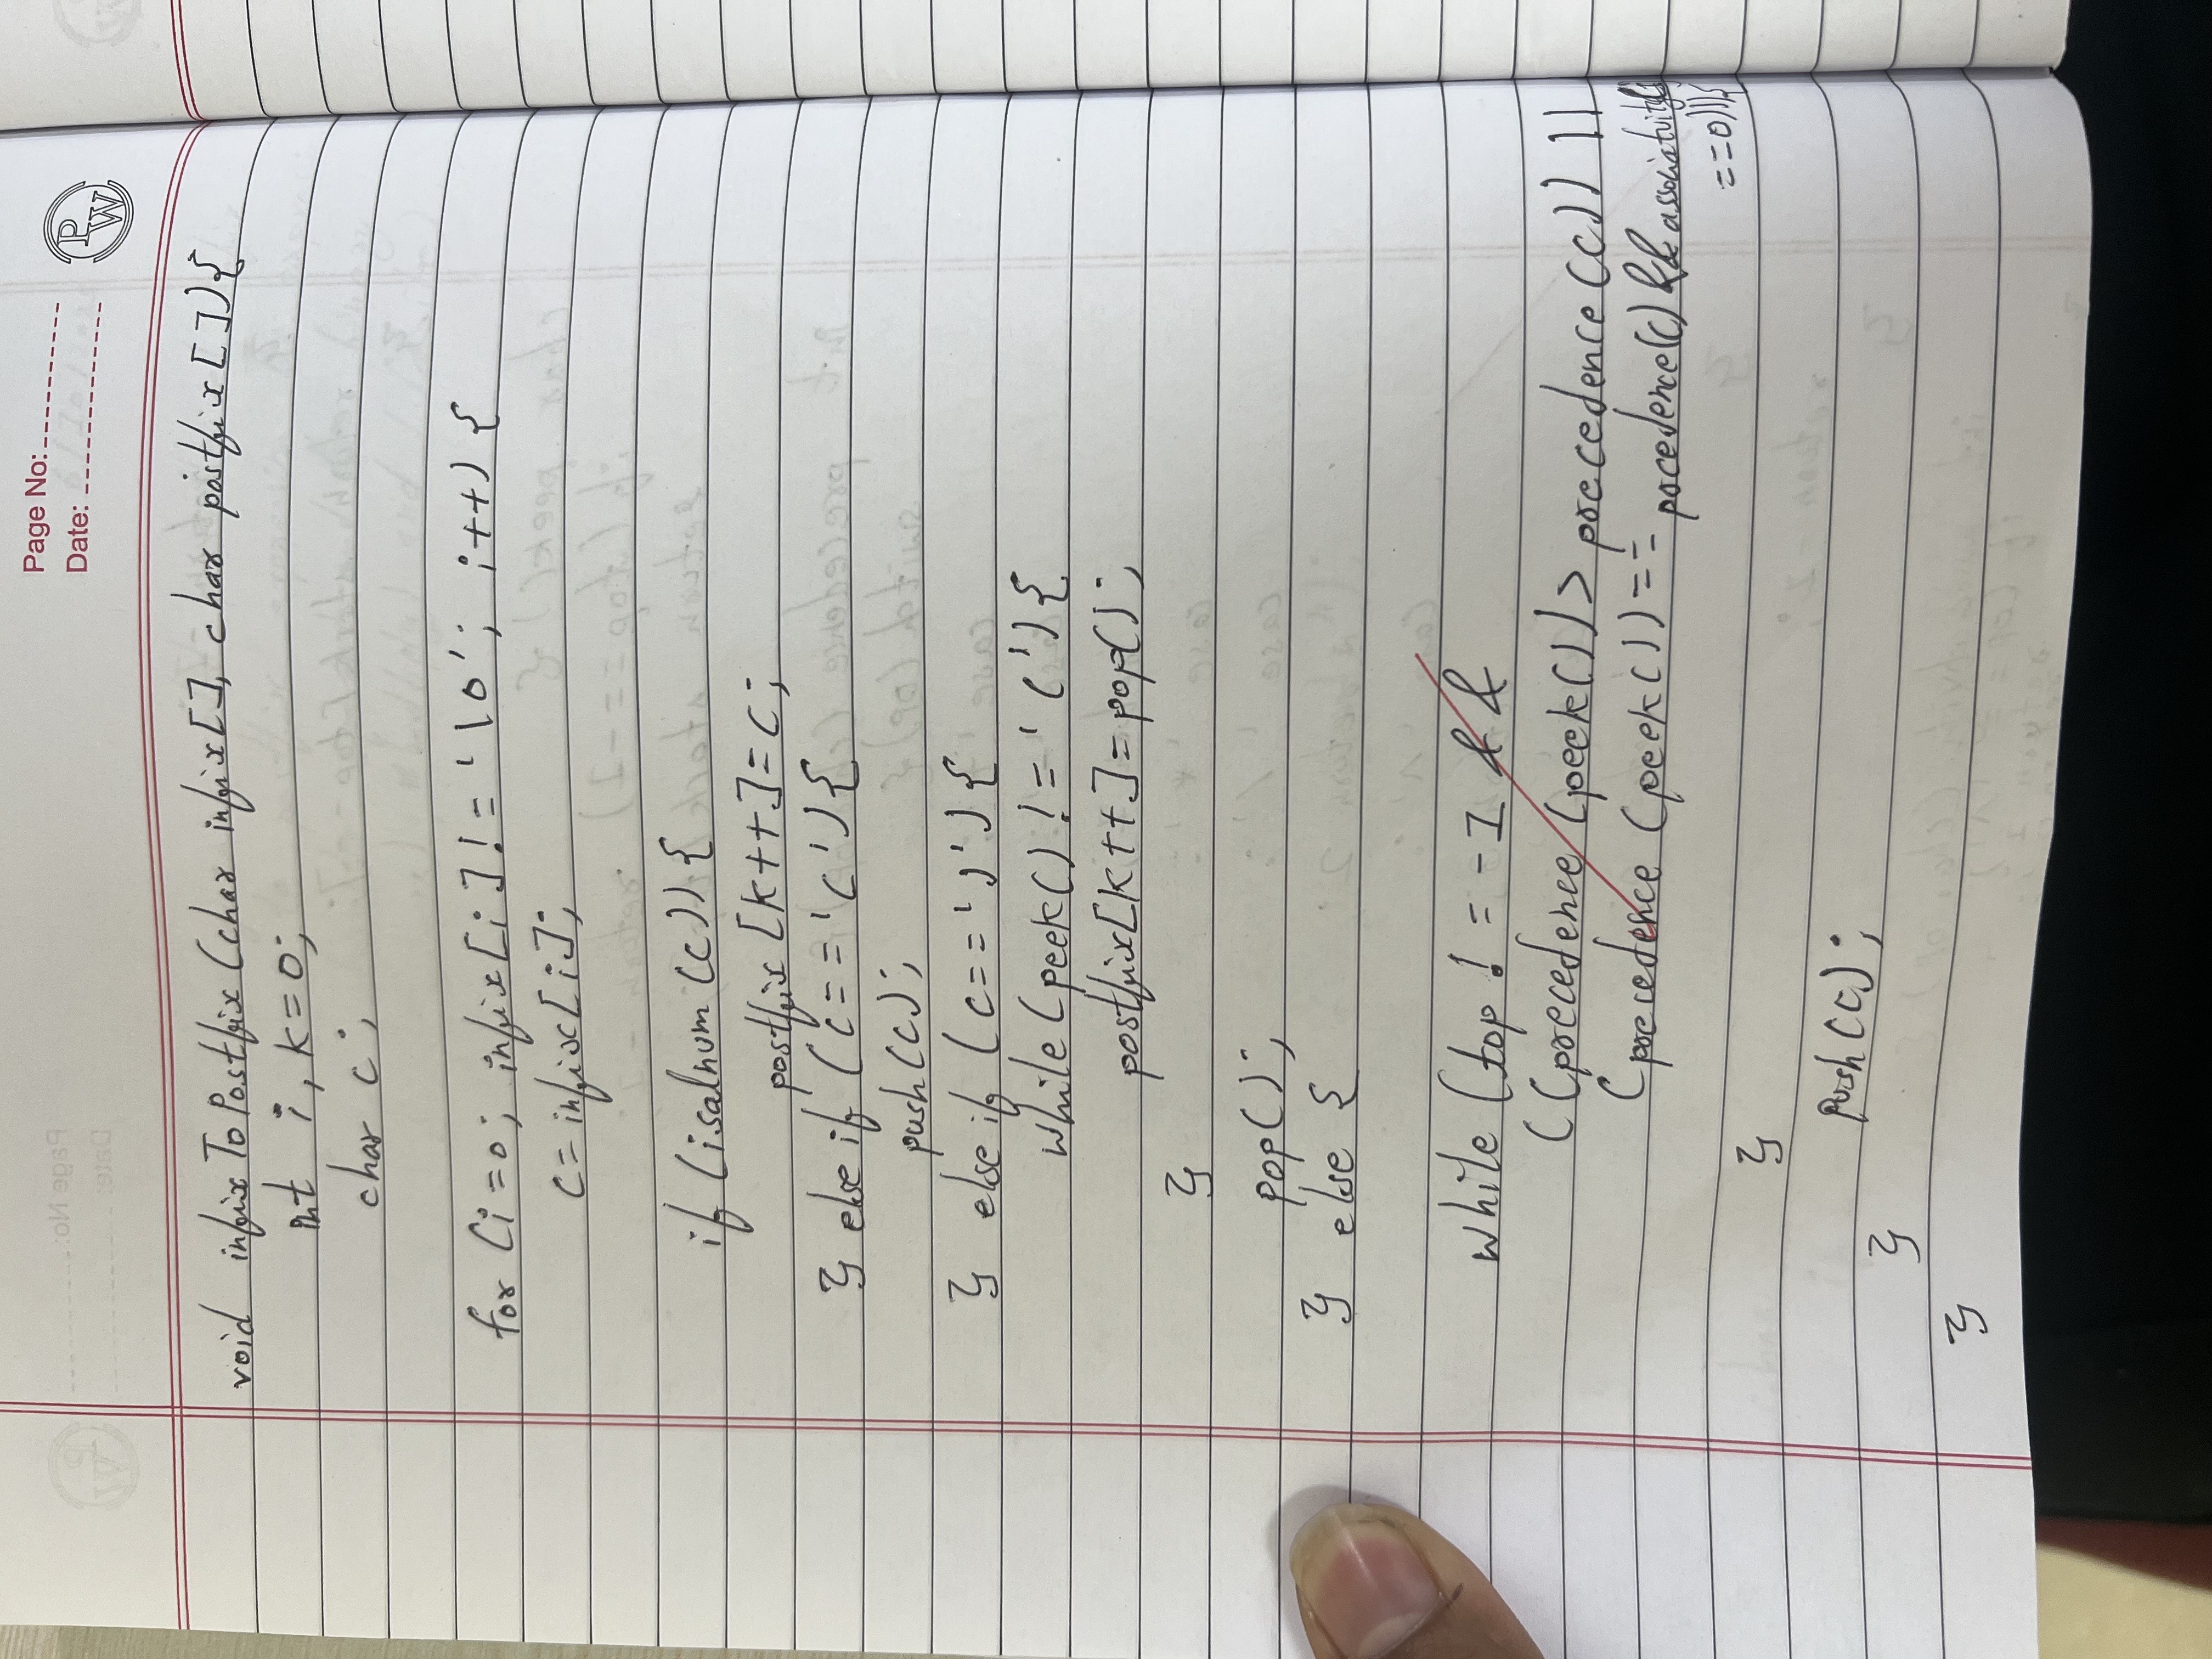 Page No:
Date:
PW
void infixToPostfix (char infix[], char postfix[]){
int i, k=0;
char c;
for (i=0; infix[i]!='\0'; i++) {
c=infix[i];
if (isalnum(c)){
postfix[k++]=c;
} else if (c=='('){
push(c);
} else if (c==')'){
while (peek() != '('){
postfix[k++]=pop();
}
pop();
} else {
while (top != -1 &&
((precedence (peek())> precedence(c)) ||
(precedence (peek())== pocedence(c) && associativity(c)
==0))){
}
push(c);
}
}